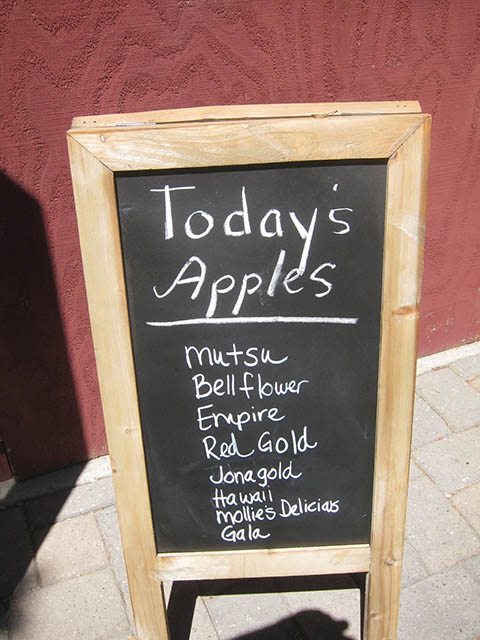 Today's
Apples
Mutsu
Bellflower
Empire
Red Gold
Jonagold
Hawaii
Mollie's Delicious
Gala